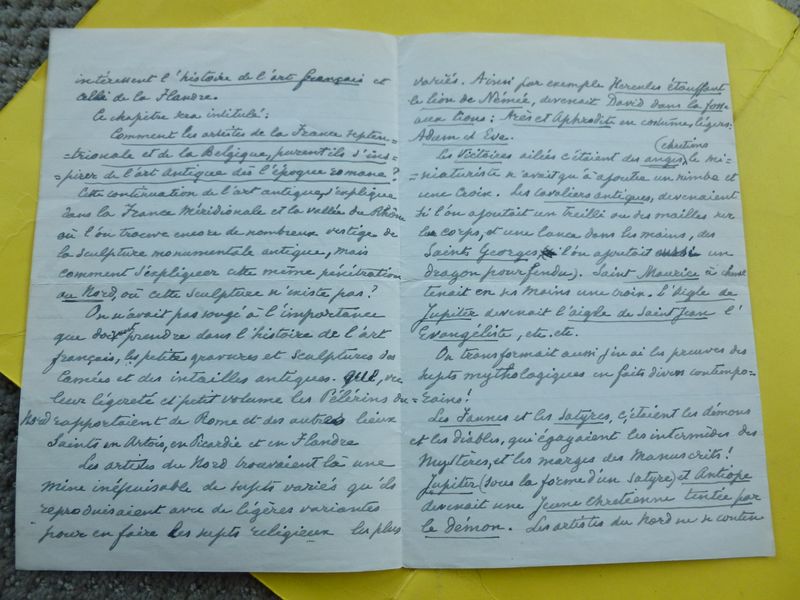 intéressent l'histoire de l'art français et
celle de la Flandre.
Ce chapitre sera intitulé:
Comment les artistes de la France Septen-
-trionale et de la Belgique, purent ils s'ins-
-pirer de l'art Antique dès l'époque romane?
Cette continuation de l'art antique, s'explique
dans la France Méridionale et la vallée du Rhône
où l'on trouve encore de nombreux vestige de
la sculpture monumentale antique, mais
comment s'expliquer cette même pénétration
au Nord, où cette sculpture n'existe pas?
On n'avait pas songé à l'importance
que doivent prendre dans l'histoire de l'art
français, les petites gravures et sculptures des
Camées et des intailles antiques. que, vu
leur légèreté et petit volume les Pélérins du
Nord rapportaient de Rome et des autres lieux
Saints en Artois, en Picardie et en Flandre
Les artistes du Nord trouvaient là une
mine inépuisable de sujets variés qu'ils
reproduisaient avec de légères variantes
pour en faire les sujets religieux les plus
variés. Ainsi par exemple Hercules étouffant
le lion de Némée, devenait David dans la fosse
aux lions: Arès et Aphrodite en costumes légers:
Adam et Eve.
Les Victoires ailées c'étaient des anges chrétiens, le mi-
-niaturiste n'avait qu'à ajouter un nimbe et
une Croix. Les cavaliers antiques, devenaient
si l'on ajoutait un treilli ou des mailles sur
le corps, et une lance dans les mains, des
Saints Georges (si l'on ajoutait un
dragon pourfendu). Saint Maurice à cheval
tenait en ses mains une croix. l'Aigle de
Jupiter devenait l'aigle de Saint Jean l'
Evangéliste, etc. etc.
On transformait aussi j'en ai les preuves des
sujets mythologiques en faits divers contempo-
-rains!
Les Faunes et les Satyres, c'étaient les démons
et les diables, qui égayaient les intermèdes des
Mystères, et les marges des Manuscrits!
Jupiter (sous la forme d'un Satyre) et Antiope
devenait une Jeune Chretienne tentée par
le démon. Les artistes du Nord ne se conten